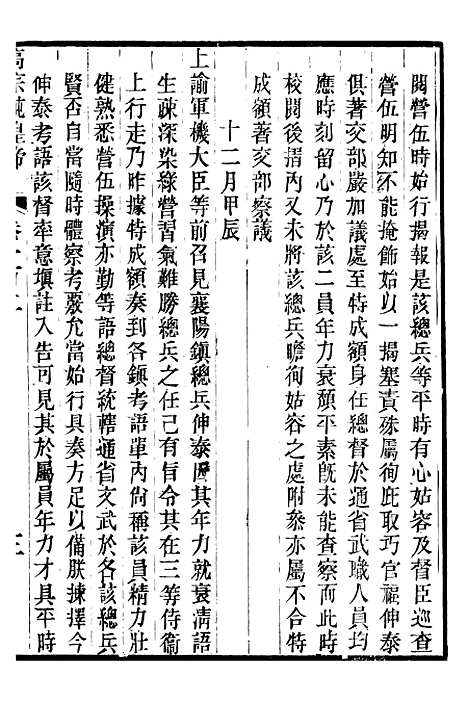 閱營伍時始行揭報是該總兵等平時有心姑容及督臣巡查
營伍明知不能掩飾始以一揭塞責殊屬徇庇取巧官福伸泰
俱著交部嚴加議處至特成額身任總督於通省武職人員均
應時刻留心乃於該二員年力衰頹平素旣未能查察而此時
校閱後摺內又未將該總兵瞻徇姑容之處附叅亦屬不合特
成額著交部察議
十二月甲辰
上諭軍機大臣等前召見襄陽鎮總兵伸泰因其年力就衰清語
生疎深染綠營習氣難勝總兵之任已有旨令其在三等侍衞
上行走乃昨據特成額奏到各鎮考語單內尙稱該員精力壯
健熟悉營伍操演亦勤等語總督統轄通省文武於各該總兵
賢否自當隨時體察考覈允當始行具奏方足以備朕揀擇今
伸泰考語該督率意塡註入告可見其於屬員年力才具平時
高宗純皇帝
三